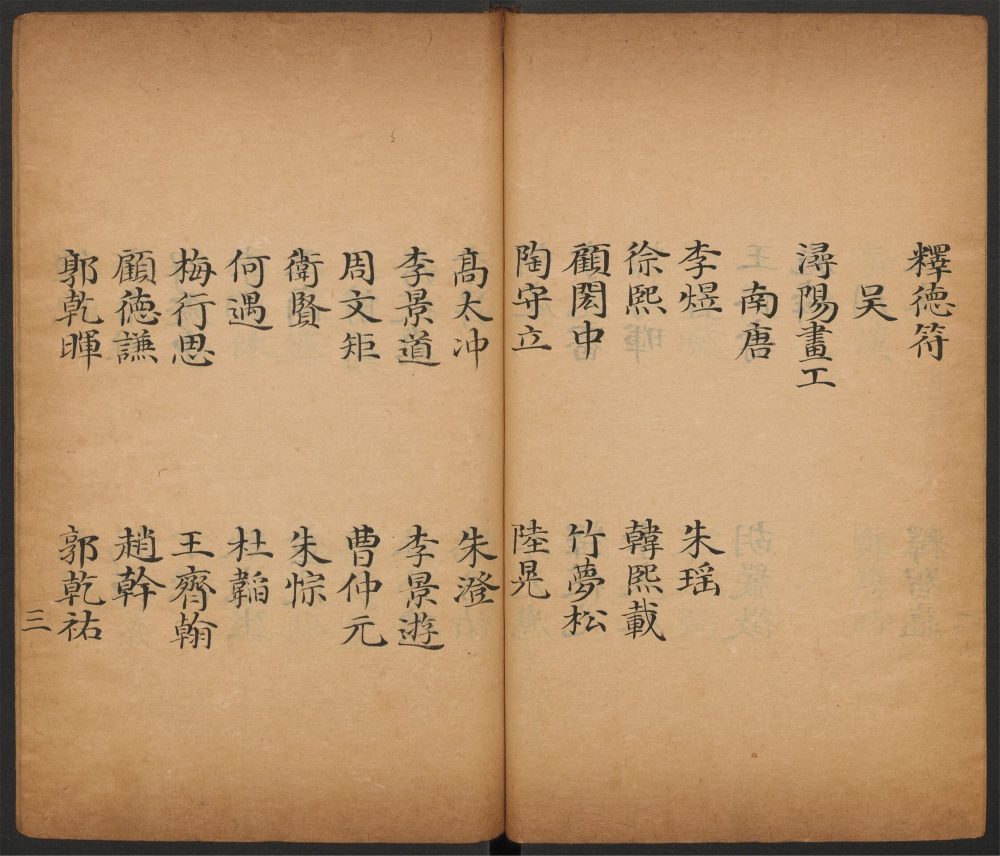 釋德符
吴
潯陽畫工
南唐
李煜 朱瑶
徐熙 韓熙載
顧閎中 竹夢松
陶守立 陸晃
高太冲 朱澄
李景道 李景遊
周文矩 曹仲元
衛賢 朱悰
何遇 杜韜
梅行思 王齊翰
顧德謙 趙幹
郭乾暉 郭乾祐
三